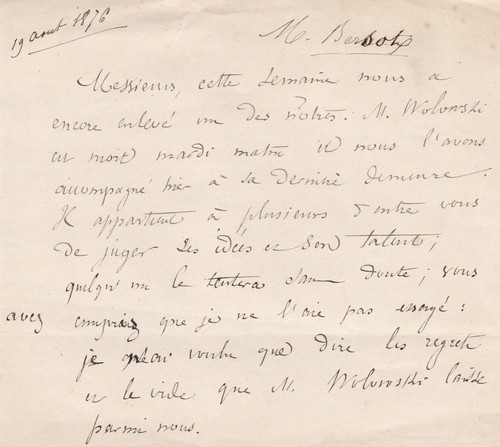 19 août 1876
M. Bersot
Messieurs, cette semaine nous a
encore enlevé un des nôtres. M. Wolowski
est mort mardi matin et nous l'avons
accompagné hier à sa dernière demeure.
Il appartient à plusieurs d'entre vous
de juger ses idées et son talent;
quelqu'un le tentera sans doute; vous
avez compris que je ne l'aie pas essayé:
je n'ai voulu que dire les regrets
et le vide que M. Wolowski laisse
parmi nous.